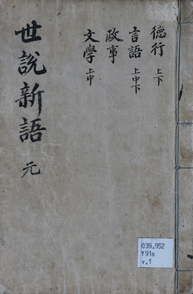 德行 上下
言語 上中下
政事
文學 上中
世說新語 元
039.952
Y91s
v.1